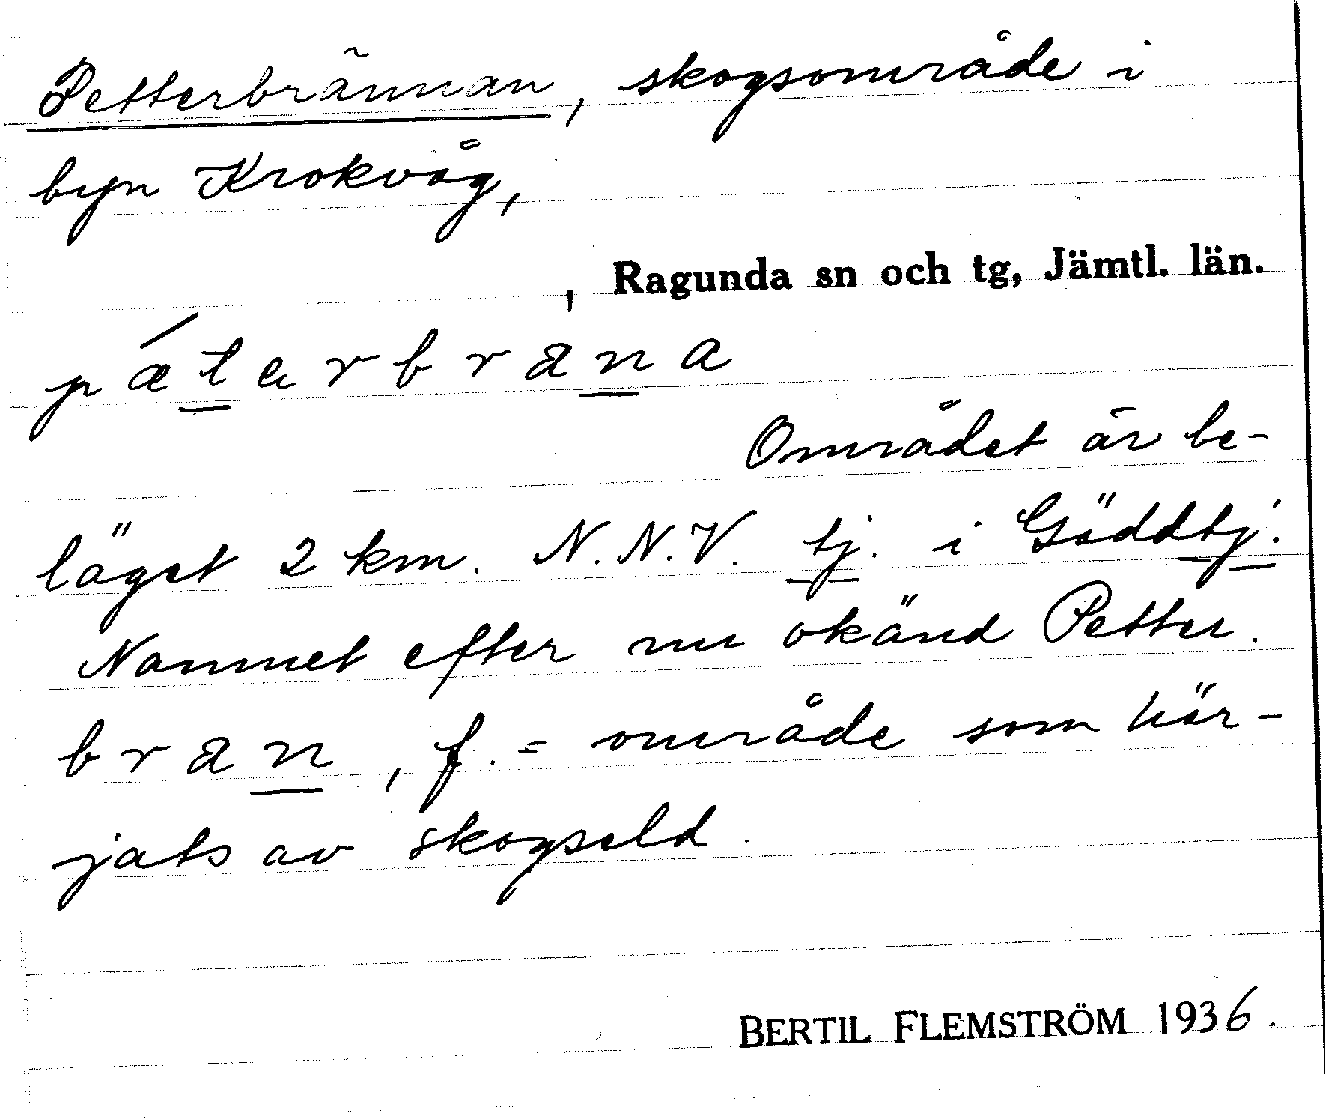 Petterbrännan, skogsområde i
byn Krokvåg,
, Ragunda sn och tg, Jämtl. län.
pætərbrana
Området är be-
läget 2 km. N.N.V. tj. i Göddtj.
Namnet efter nu okänd Petter.
bran, f. = område som här-
jats av skogseld.
BERTIL FLEMSTRÖM 1936.